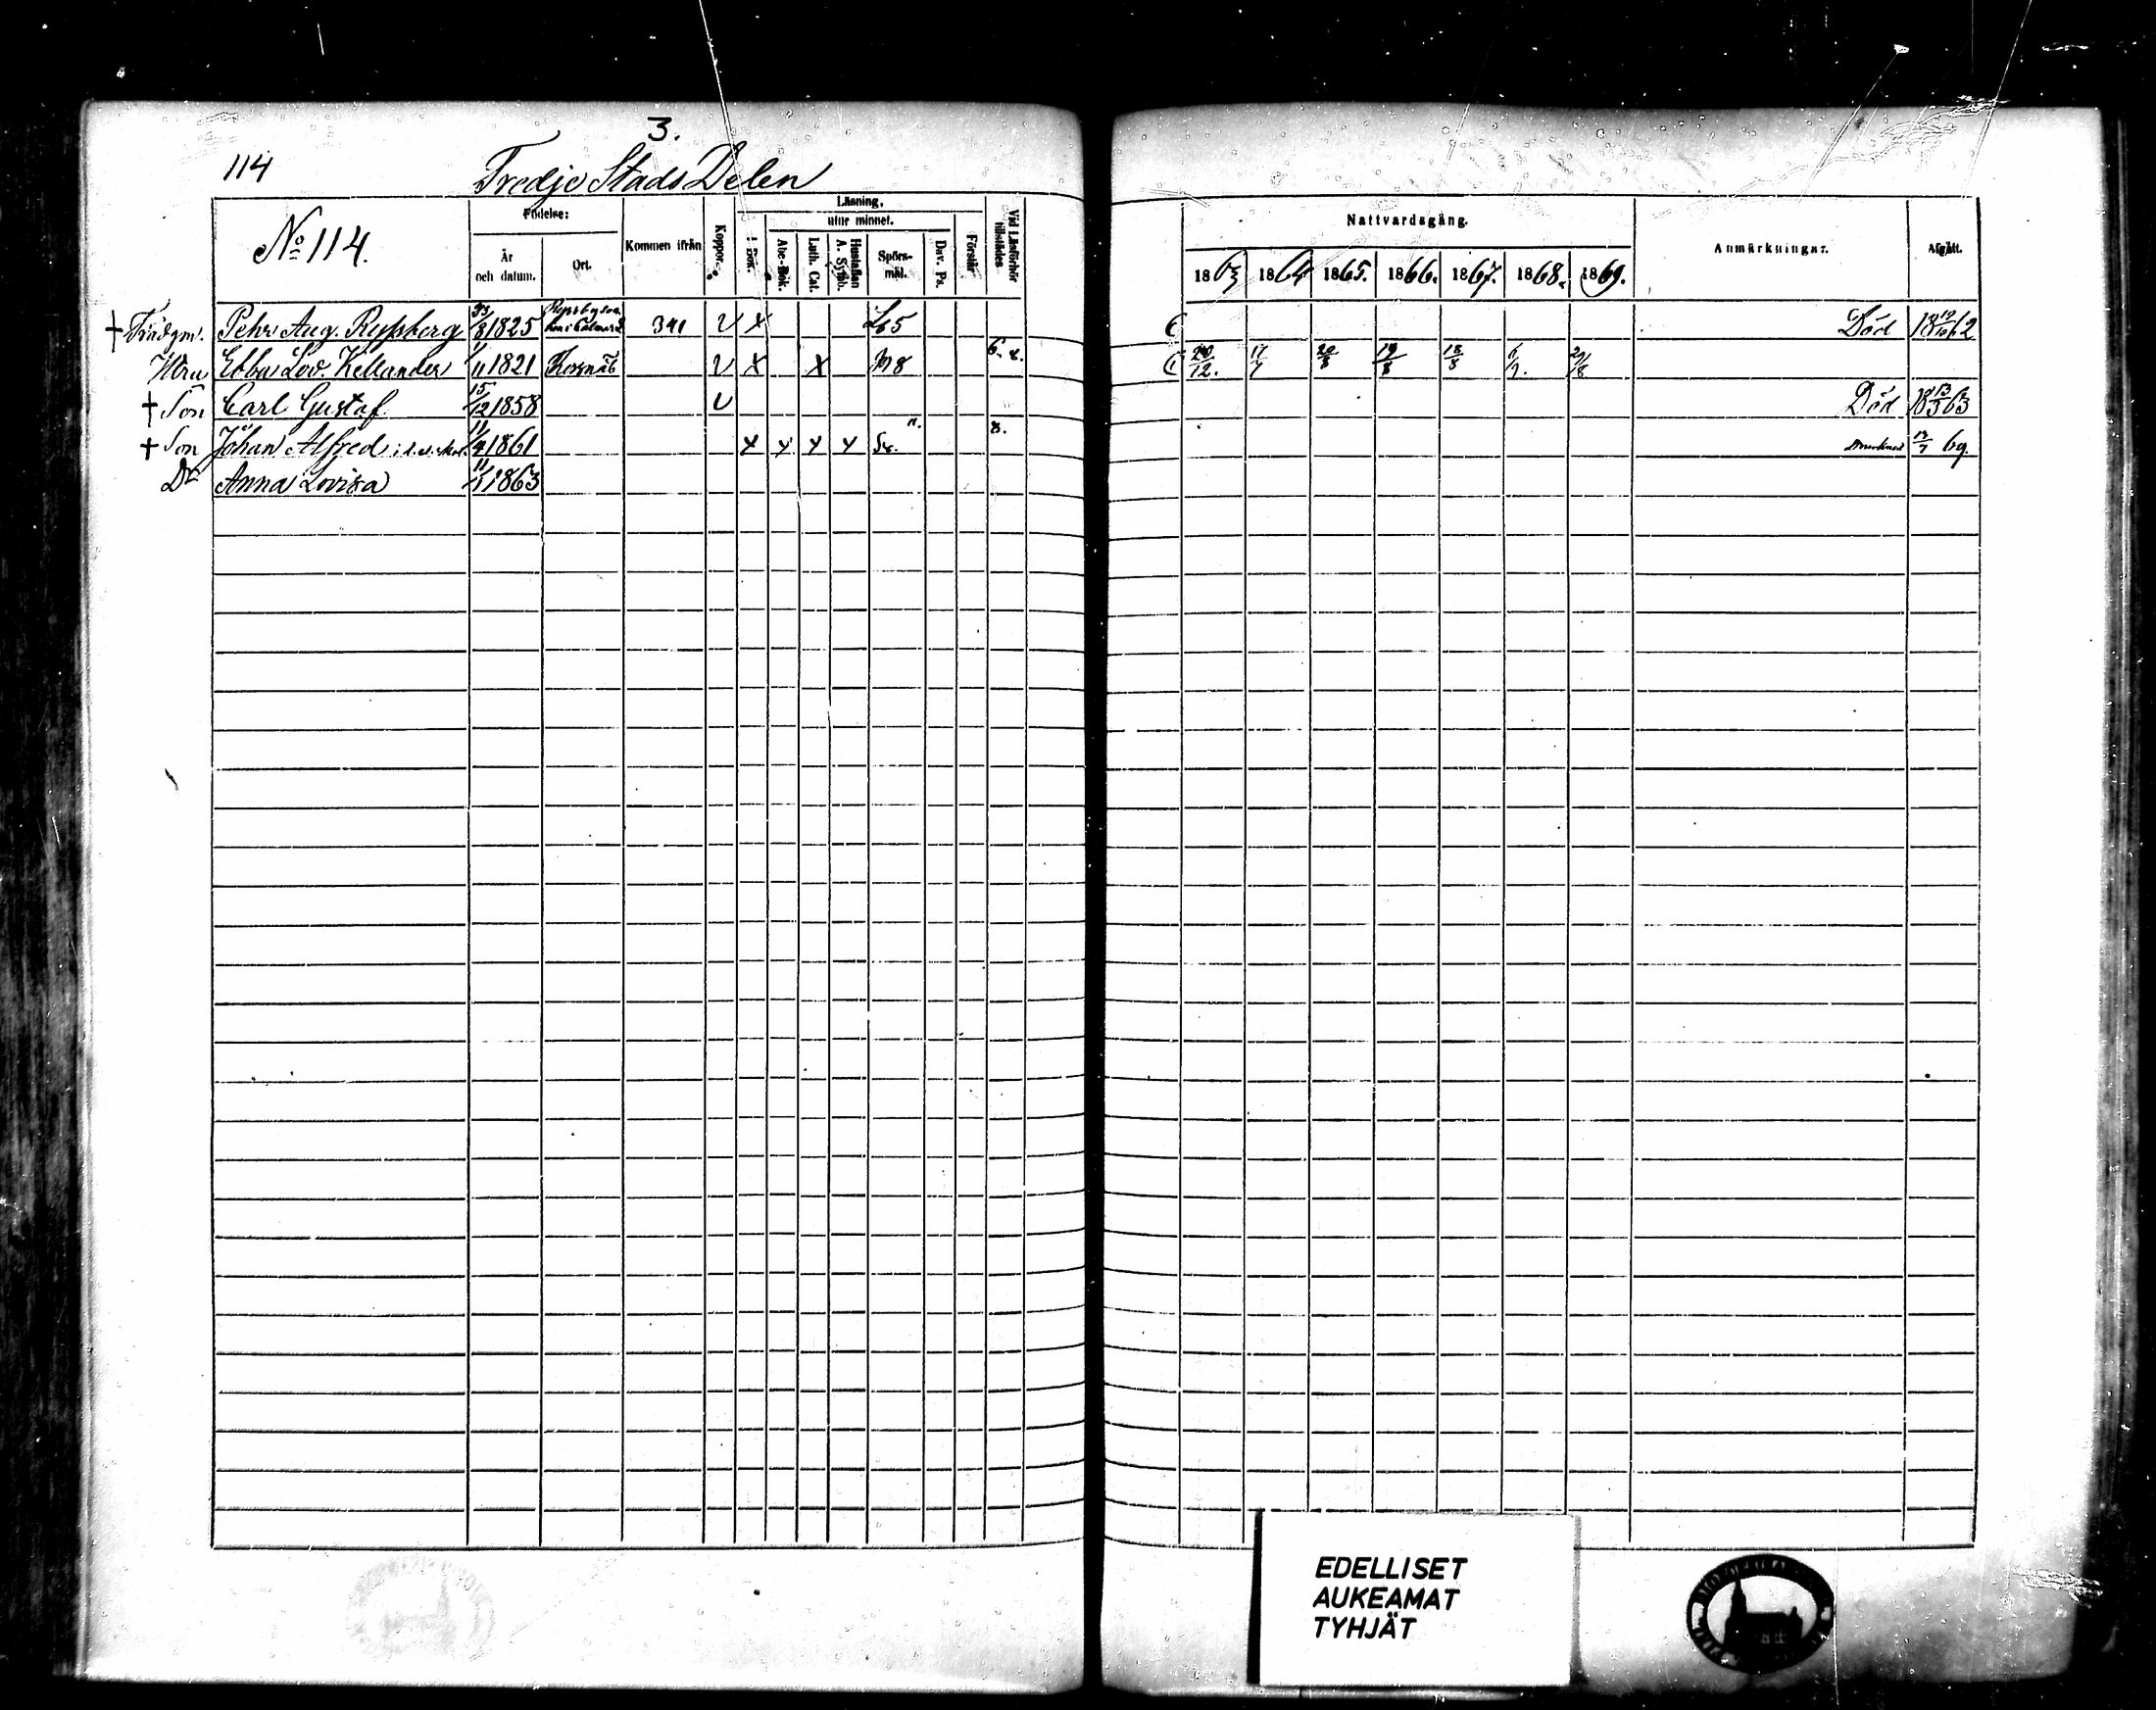 3.
114
Tredje Stads Delen
No 114.
Födelse:
År och datum.
Ort.
Kommen ifrån
Koppor.
Läsning,
utur minnet.
i Bok.
Abc-Bok.
Luth. Cat.
Hustaflan A. Symb.
Spörsmål.
Dav. Ps.
Förstår
Vid Läsförhör tillstädes
Nattvardsgång.
1863 1864 1865. 1866. 1867. 1868. 1869.
Anmärkningar.
Afgått.
† Trädgm. Pehr Aug. Ryssberg 1825 341 V X Död 18 19/10 62
Ebba Lov. Kellander 1/11 1821 Korsnäs V X X 6. 8. 20/12. 17/7 20/8 19/8 18/8
† Son Carl Gustaf 15/12 1858 V Död 18 13/3 63
† Son Johan Alfred 11/4 1861 X X X X 8. 69.
Dr Anna Lovisa 11/1 1863
EDELLISET
AUKEAMAT
TYHJÄT